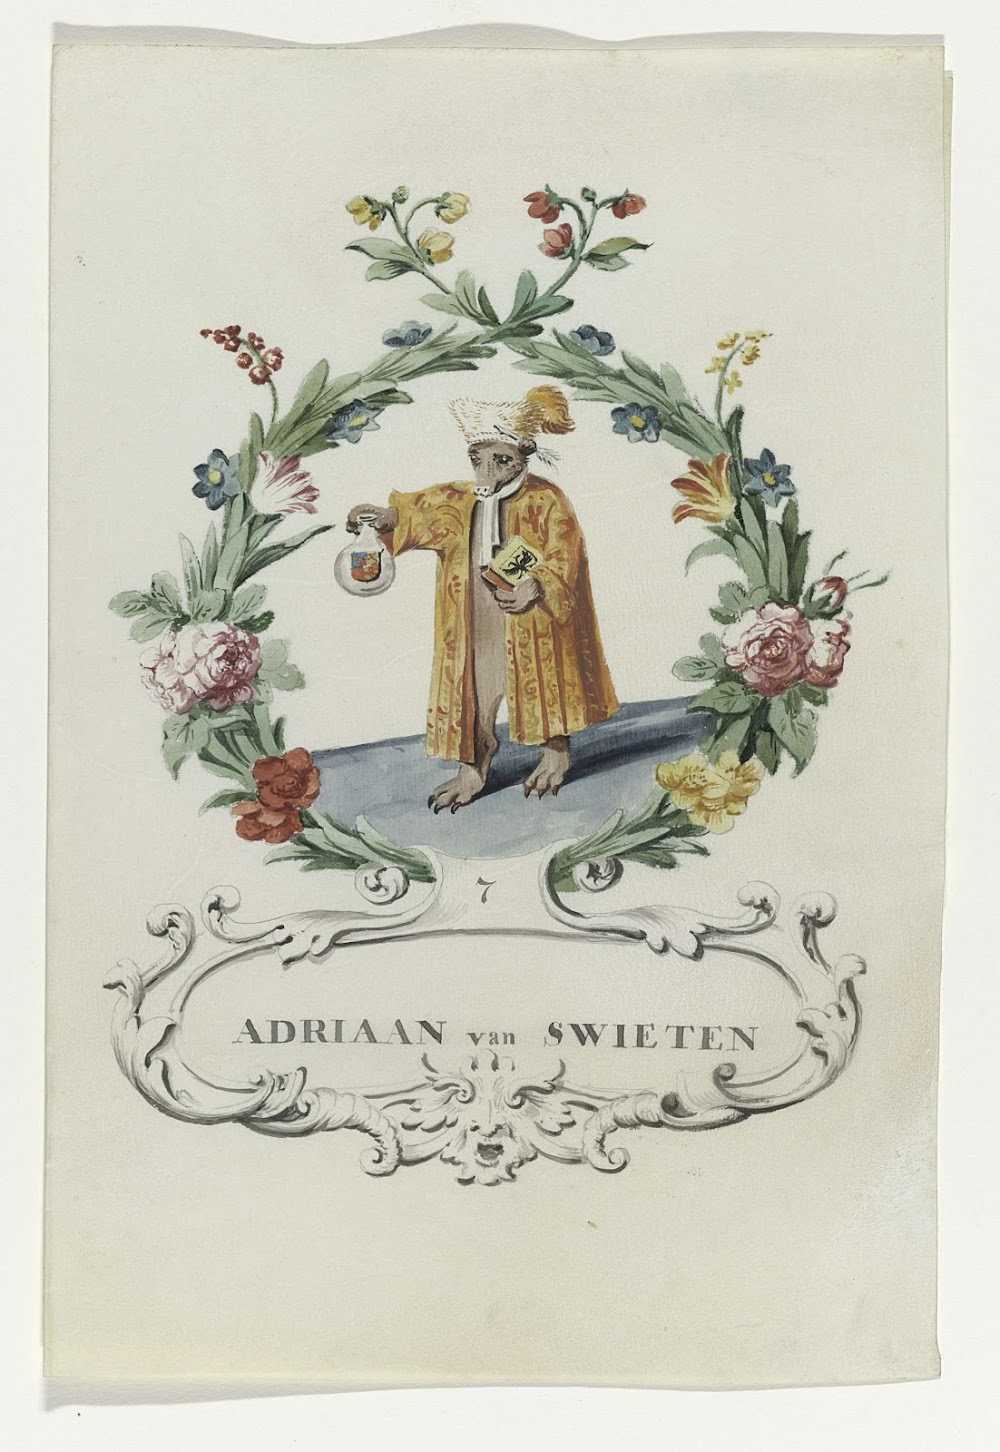 7
ADRIAAN van SWIETEN